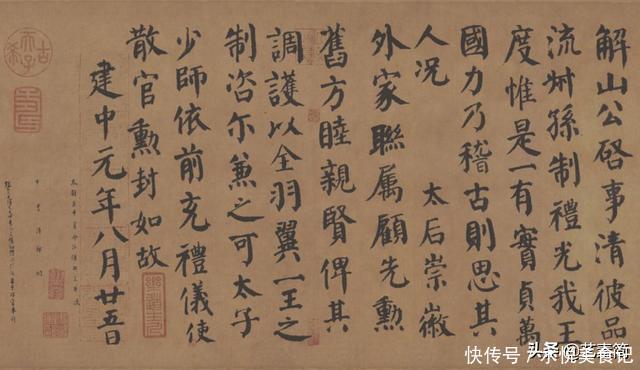 解山公啓事清彼品
流叔孫制禮光我王
度惟是一有實貞萬
國力乃稽古則思其
人況 太后崇徽
外家聯属顧先勳
舊方睦親賢俾其
調護以全羽翼一王之
制咨尔兼之可太子
少師依前充禮儀使
散官勳封如故
建中元年八月廿五日
古希天子
头条
快传号/永悦美食记